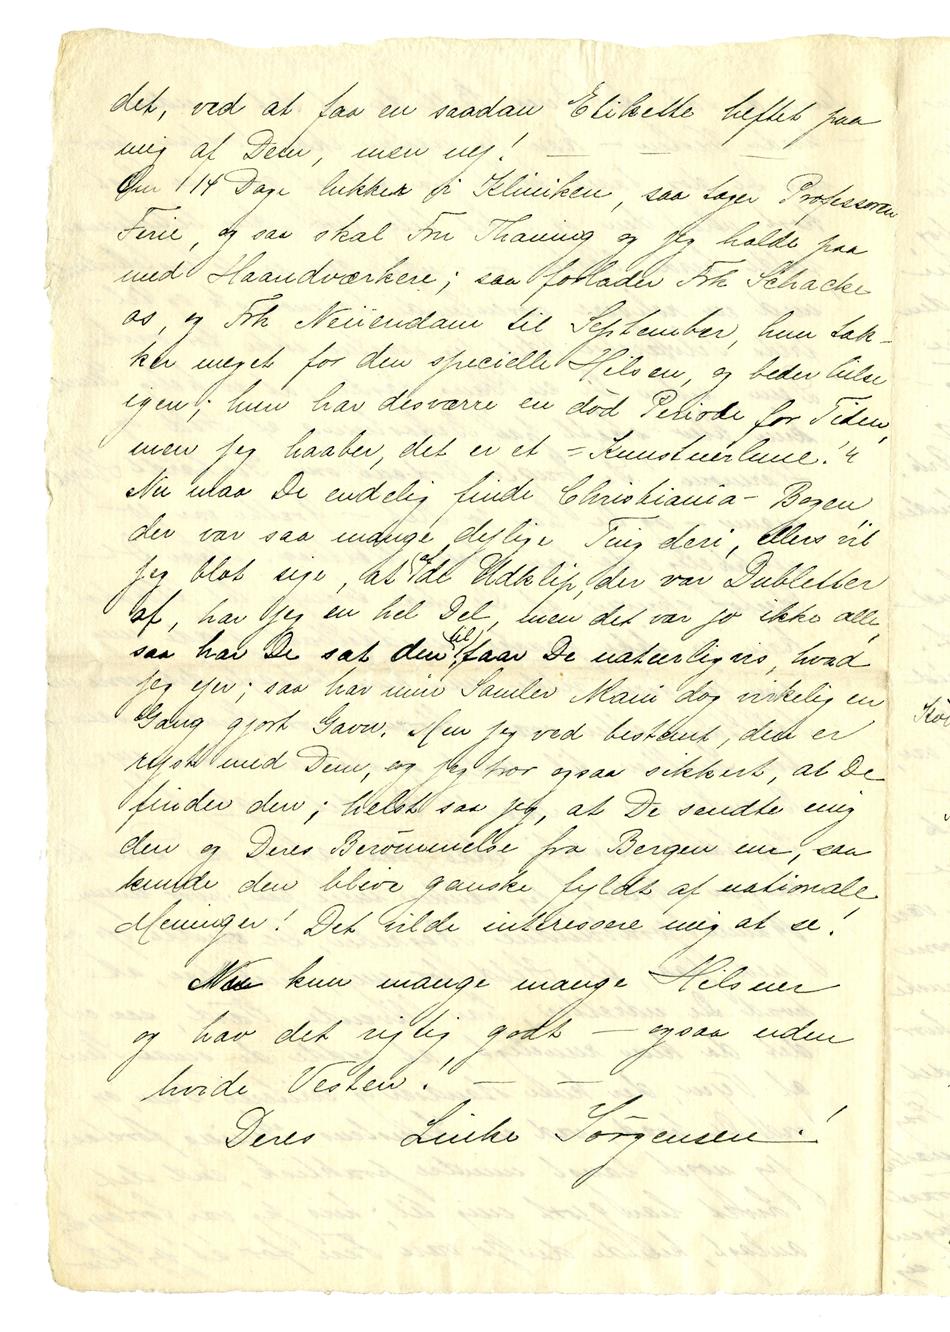 det, ved at faa en saadan Etikette heftet paa
mig af Dem, men nej! — — —
Om 14 Dage lukker vi Kliniken, saa tager Professoren
Ferie, og saa skal Fru Thaning og jeg holde paa
med Haandværkere; saa forlader Frk Schacke
os, og Frk Neuendam til September, hun tak-
ker meget for den specielle Hilsen, og beder hilse
igen; hun har desværre en död Periode for Tiden,
men jeg haaber, det er et = Kunstnerlune!"
Nu maa De endelig finde Christiania- Bogen
der var saa mange dejlige Ting deri, ellers vil
jeg blot sige, at af de Udklip, der var Dubletter
af, har jeg en hel Del, men det var jo ikke alle,
saa har De sat den til, faar De naturligvis, hvad
jeg ejer; saa har min Samler Mani dog virkelig en
Gang gjort Gavn. Men jeg ved bestemt, den er
rejst med Dem, og jeg tror ogsaa sikkert, at De
finder den; helst saa jeg, at De sendte mig
den og Deres Berömmelse fra Bergen me, saa
kunde den blive ganske fyldt af nationale
Meninger! Det vilde interessere mig at se!
Nu kun mange mange Hilsner
og hav det rigtig godt — ogsaa uden
hvide Vesten! — —
Deres Linke Jörgensen!
Kö